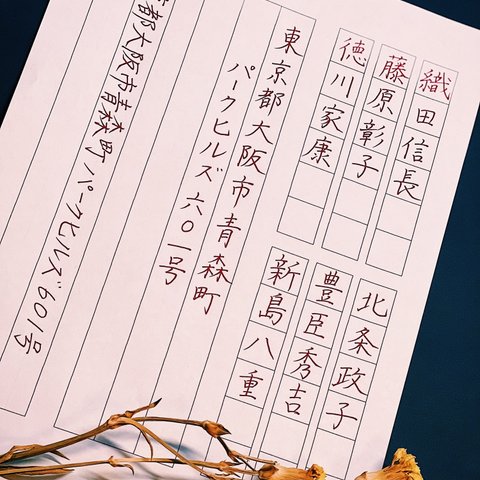 織田信長
藤原彰子
徳川家康
北条政子
豊臣秀吉
新島八重
東京都大阪市青森町
パークヒルズ六〇一号
京都大阪市青森町パークヒルズ601号